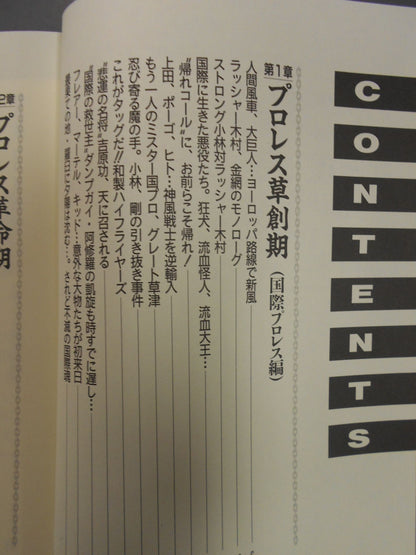 CONTENTS
第1章 プロレス草創期(国際プロレス編)
人間風車、大巨人…ヨーロッパ路線で新風
ラッシャー木村、金網のモノローグ
ストロング小林対ラッシャー木村
国際に生きた悪役たち。狂犬、流血怪人、流血大王…
“帰れコール”に、お前らこそ帰れ!
上田、ポーゴ、ヒト…神風戦士を逆輸入
もう一人のミスター国プロ、グレート草津
忍び寄る魔の手。小林、剛の引き抜き事件
これがタッグだ!!和製ハイフライヤーズ
“悲運の名将”吉原功、天に召される
“国際の救世主”ダンプガイ・阿修羅の凱旋も時すでに遅し…
フレアー、マーテル、キッド…意外な大物たちが初来日
されど不滅の国際魂
2章 プロレス革命期